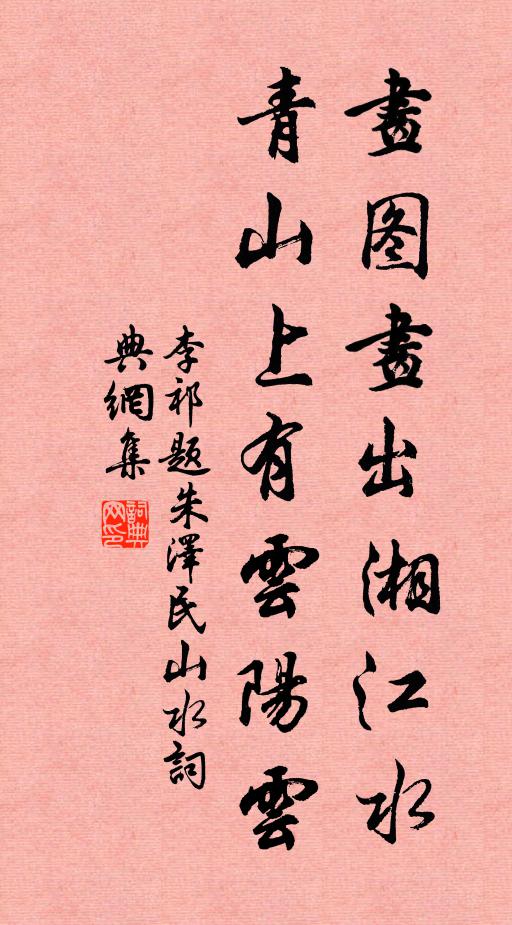 畫图畫出湘江水
青山上有雲陽雲
李祁题朱澤民山水詞
典網集
詞典
网印